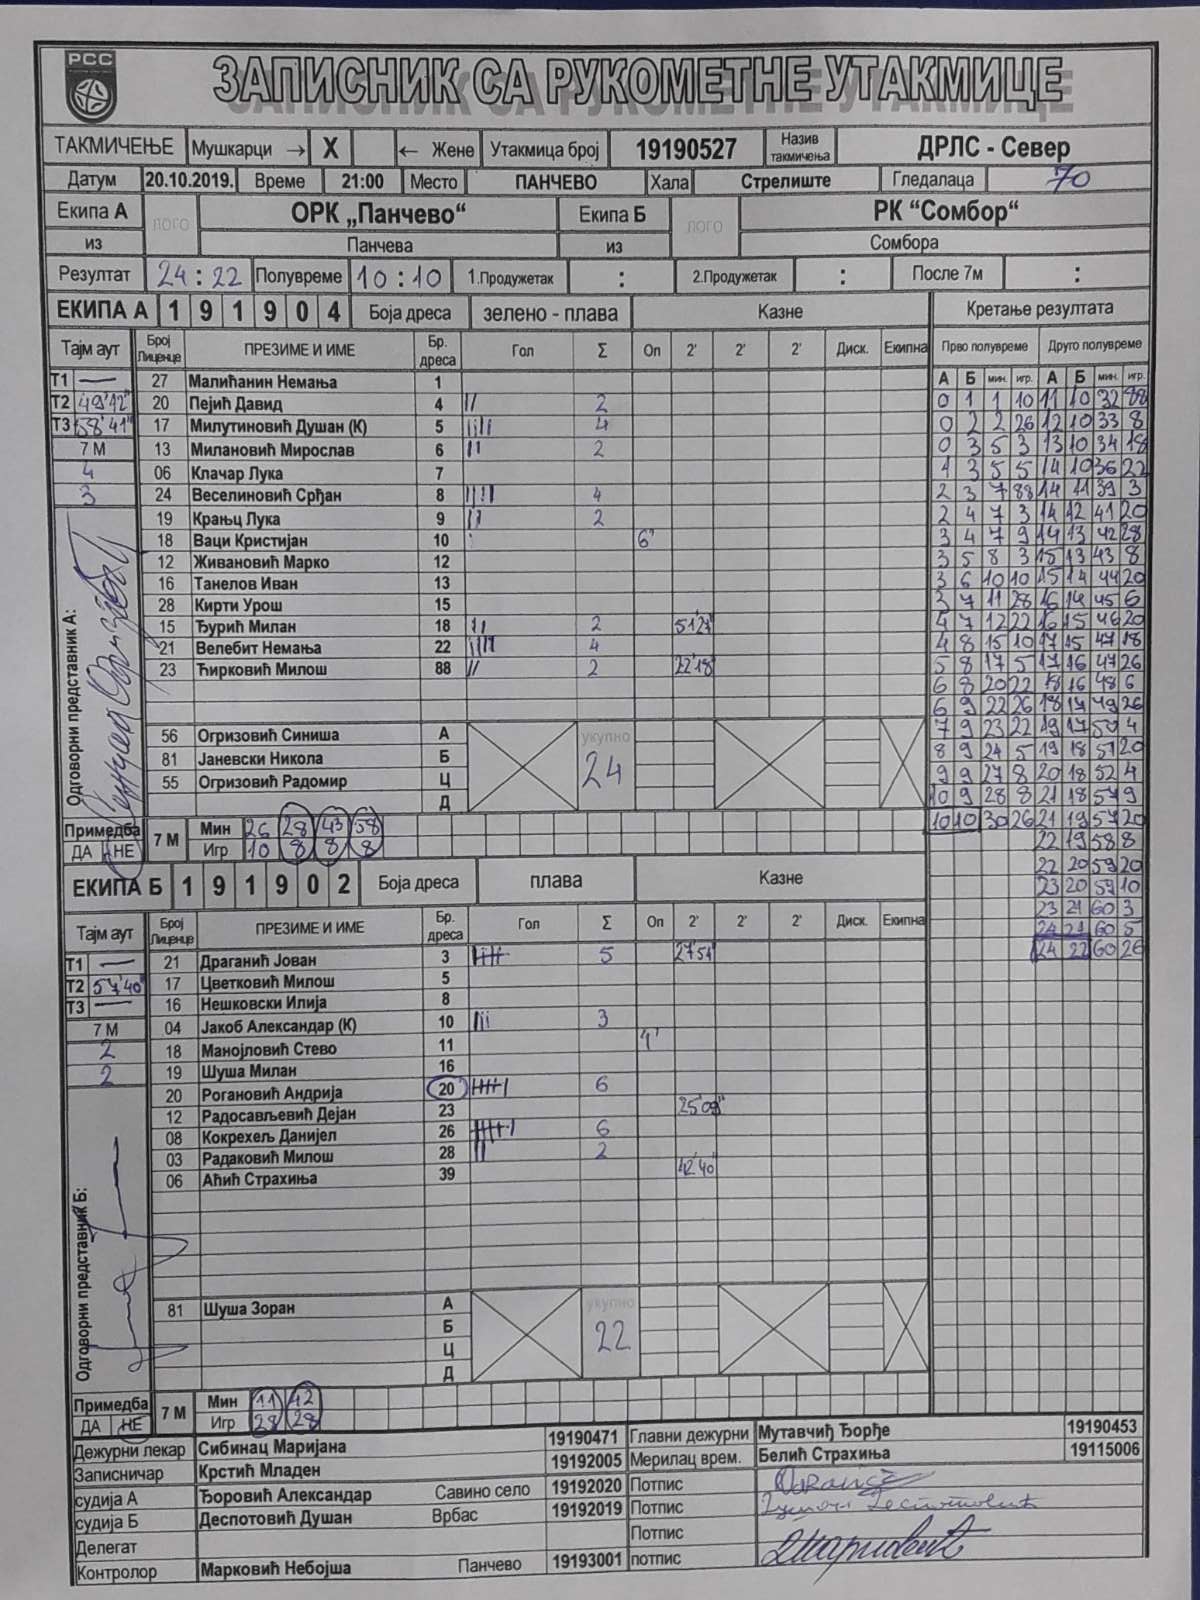 РСС
ЗАПИСНИК СА РУКОМЕТНЕ УТАКМИЦЕ
ТАКМИЧЕЊЕ Мушкарци → X ← Жене Утакмица број 19190527 Назив такмичења ДРЛС - Север
Датум 20.10.2019. Време 21:00 Место ПАНЧЕВО Хала Стрелиште Гледалаца 70
Екипа А лого ОРК „Панчево“ Екипа Б лого РК “Сомбор“
из Панчева из Сомбора
Резултат 24 : 22 Полувреме 10 : 10 1.Продужетак : 2.Продужетак : После 7м :
ЕКИПА А 1 9 1 9 0 4 Боја дреса зелено - плава Казне Кретање резултата
Тајм аут Број Лиценце ПРЕЗИМЕ И ИМЕ Бр. дреса Гол Σ Оп 2' 2' 2' Диск. Екипна Прво полувреме Друго полувреме
А Б мин. игр. А Б мин. игр.
Т1 — 27 Малићанин Немања 1
Т2 49'12" 20 Пејић Давид 4 II 2 0 1 1 10 11 10 32 88
Т3 58'41" 17 Милутиновић Душан (К) 5 IIII 4 0 2 2 26 12 10 33 8
7 М 13 Милановић Мирослав 6 II 2 0 3 5 3 13 10 34 18
4 06 Клачар Лука 7 1 3 5 5 14 10 36 22
3 24 Веселиновић Срђан 8 IIII 4 2 3 7 88 14 11 39 3
19 Крањц Лука 9 II 2 2 4 7 3 14 12 41 20
18 Ваци Кристијан 10 6' 3 4 7 9 14 13 42 28
12 Живановић Марко 12 3 5 8 3 15 13 43 8
16 Танелов Иван 13 3 6 10 10 15 14 44 20
28 Кирти Урош 15 3 7 11 28 16 14 45 6
15 Ђурић Милан 18 II 2 51'27" 4 7 12 22 16 15 46 20
21 Велебит Немања 22 IIII 4 4 8 15 10 17 15 47 18
23 Ћирковић Милош 88 II 2 22'18" 5 8 17 5 17 16 47 26
6 8 20 22 18 16 48 6
6 9 22 26 18 17 49 26
56 Огризовић Синиша А укупно 24 7 9 23 22 19 17 50 4
81 Јаневски Никола Б 8 9 24 5 19 18 51 20
55 Огризовић Радомир Ц 9 9 27 8 20 18 52 4
Д 10 9 28 8 21 18 54 9
Одговорни представник А:
Примедба 7 М Мин 26 28 43 58 10 10 30 26 21 19 57 20
ДА НЕ Игр 10 8 8 8 22 19 58 8
ЕКИПА Б 1 9 1 9 0 2 Боја дреса плава Казне 22 20 59 20
23 20 59 10
23 21 60 3
Тајм аут Број Лиценце ПРЕЗИМЕ И ИМЕ Бр. дреса Гол Σ Оп 2' 2' 2' Диск. Екипна 24 21 60 5
Т1 — 21 Драганић Јован 3 IIIII 5 27'54" 24 22 60 26
Т2 57'40" 17 Цветковић Милош 5
Т3 — 16 Нешковски Илија 8
7 М 04 Јакоб Александар (К) 10 III 3
2 18 Манојловић Стево 11 4'
2 19 Шуша Милан 16
20 Рогановић Андрија 20 IIIII I 6
12 Радосављевић Дејан 23 25'09"
08 Кокрехељ Данијел 26 IIIII I 6
03 Радаковић Милош 28 II 2
06 Аћић Страхиња 39 42'40"
Одговорни представник Б:
81 Шуша Зоран А укупно 22
Б
Ц
Д
Примедба 7 М Мин 11 42
ДА НЕ Игр 28 28
Дежурни лекар Сибинац Маријана 19190471 Главни дежурни Мутавчић Ђорђе 19190453
Записничар Крстић Младен 19192005 Мерилац врем. Белић Страхиња 19115006
судија А Ђоровић Александар Савино село 19192020 Потпис
судија Б Деспотовић Душан Врбас 19192019 Потпис
Делегат Потпис
Контролор Марковић Небојша Панчево 19193001 потпис